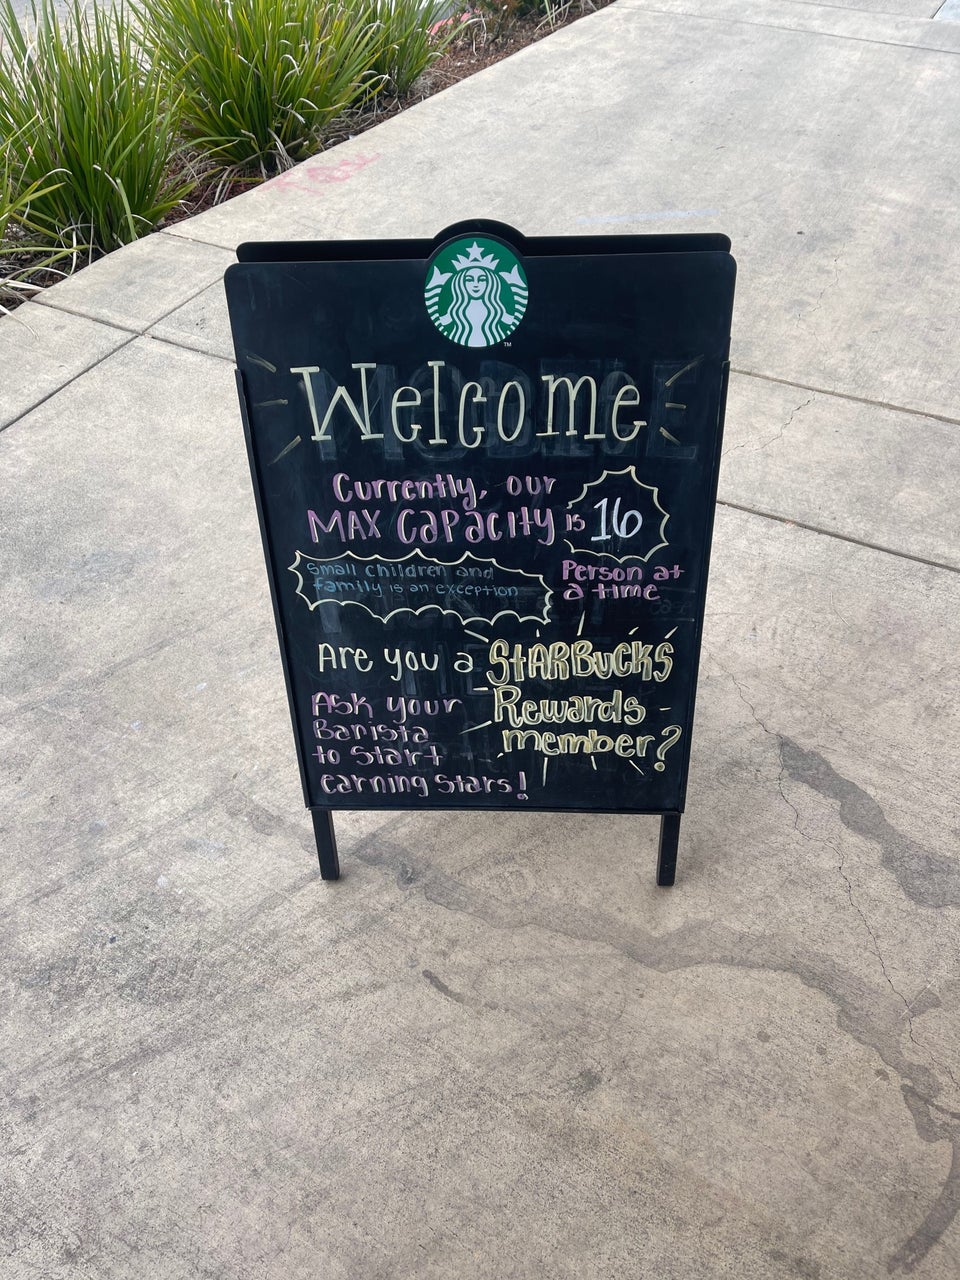 Welcome
Currently, our
MAX CAPACITY is 16
Person at
a time
small children and
family is an exception
Are you a STARBUCKS
Rewards
member?
Ask your
Barista
to start
earning stars!
TM